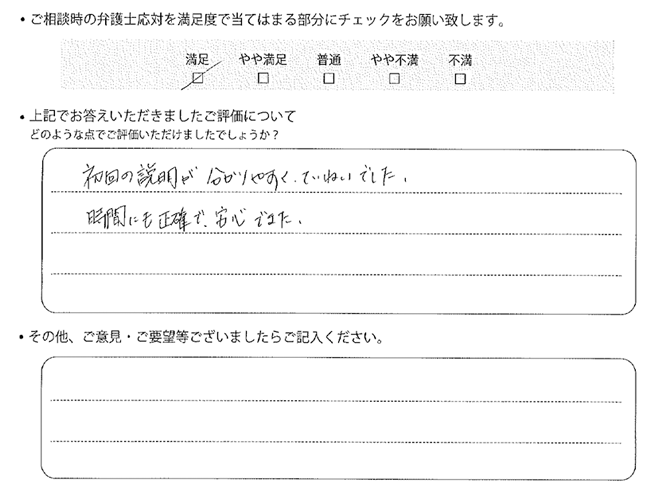 ・ご相談時の弁護士応対を満足度で当てはまる部分にチェックをお願い致します。
満足 やや満足 普通 やや不満 不満
・上記でお答えいただきましたご評価について
どのような点でご評価いただけましたでしょうか？
初回の説明が分かりやすく、ていねいでした。
時間にも正確で、安心できた。
・その他、ご意見・ご要望等ございましたらご記入ください。